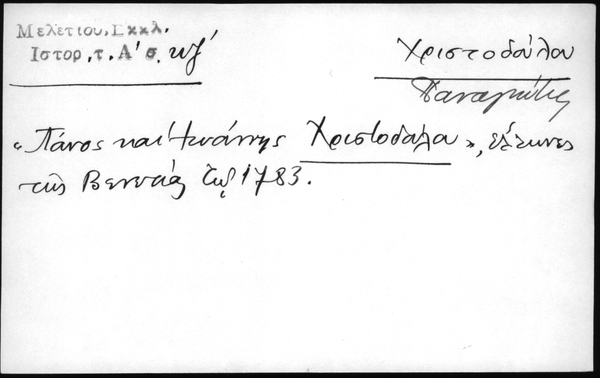 Μελετίου, Εκκλ.
Ιστορ, τ. Α' σ. κζ'
Χριστοδούλου
Παναγιώτης
"Πάνος και Ιωάννης Χριστοδούλου",
της Βενετίας 1783.